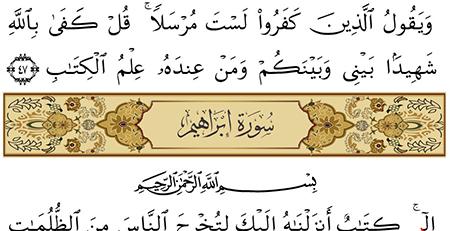 وَيَقُولُ ٱلَّذِينَ كَفَرُوا۟ لَسْتَ مُرْسَلًا ۚ قُلْ كَفَىٰ بِٱللَّهِ
شَهِيدًۢا بَيْنِى وَبَيْنَكُمْ وَمَنْ عِندَهُۥ عِلْمُ ٱلْكِتَٰبِ ٤٧
سُورَةُ إِبْرَاهِيمَ
بِسْمِ ٱللَّهِ ٱلرَّحْمَٰنِ ٱلرَّحِيمِ
الٓر ۚ كِتَٰبٌ أَنزَلْنَٰهُ إِلَيْكَ لِتُخْرِجَ ٱلنَّاسَ مِنَ ٱلظُّلُمَٰتِ